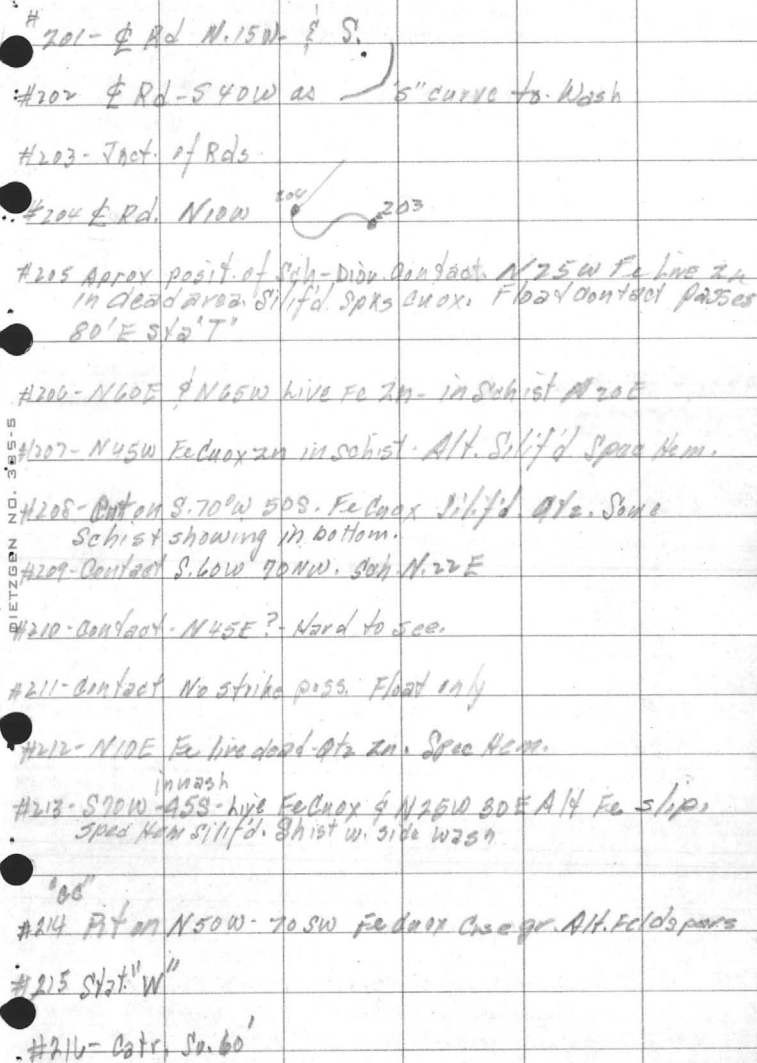 #
201- ℄ Rd N.15W- & S.
#202 ℄ Rd - S40W as "S" curve to Wash
#203- Jnct. of Rds.
#204 ℄ Rd. N10W 204 203
#205 Aprox posit. of Sch-Dior Contact. N25W Fe Live zn
in dead area. Silif'd. Spks cuox. Float contact passes
80' E Sta "T"
#206- N60E & N65W Live Fe Zn- in Schist N20E
#207- N45W FeCuox zn in schist. Alt. Silif'd Spec Hem.
#208- Pit on S.70°W 50S. FeCuox Silif'd. Qtz. Some
Schist showing in bottom.
#209- Contact S.60W 70NW. Sch. N.22E
#210- Contact- N45E?- Hard to see.
#211- Contact No strike poss. Float only
#212- N10E Fe live dead-Qtz zn. Spec Hem.
in wash
#213- S70W-45S- Live FeCuox & N25W 30E Alt Fe slip.
Spec Hem Silif'd. Shist w. side wash
#214 Pit on N50W- 70SW FeCuox Cse gr. Alt. Feldspars
#215 Stat. "W"
#216- Catr. So. 60'
DIETZGEN NO. 385-5